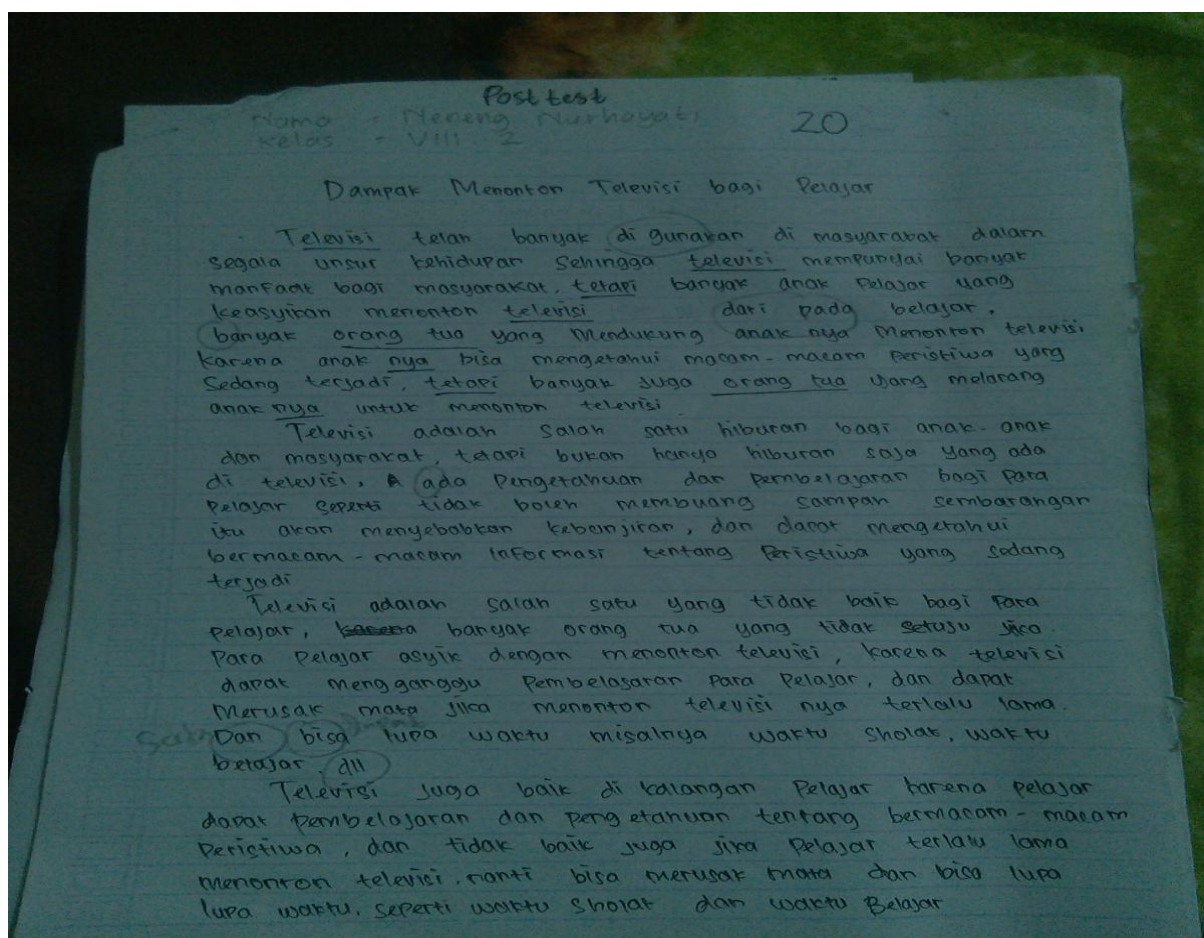 Post test
Nama : Neneng Nurhayati 20
Kelas : VIII. 2
Dampak Menonton Televisi bagi Pelajar
Televisi telah banyak di gunakan di masyarakat dalam
segala unsur kehidupan sehingga televisi mempunyai banyak
manfaat bagi masyarakat, tetapi banyak anak pelajar yang
keasyikan menonton televisi dari pada belajar.
banyak orang tua yang mendukung anak nya menonton televisi
karena anak nya bisa mengetahui macam-macam peristiwa yang
sedang terjadi, tetapi banyak juga orang tua yang melarang
anak nya untuk menonton televisi
Televisi adalah salah satu hiburan bagi anak-anak
dan masyarakat, tetapi bukan hanya hiburan saja yang ada
di televisi. ada pengetahuan dan pembelajaran bagi para
pelajar seperti tidak boleh membuang sampah sembarangan
itu akan menyebabkan kebanjiran, dan dapat mengetahui
bermacam-macam informasi tentang peristiwa yang sedang
terjadi
Televisi adalah salah satu yang tidak baik bagi para
pelajar, karena banyak orang tua yang tidak setuju jika
para pelajar asyik dengan menonton televisi, karena televisi
dapat mengganggu pembelajaran para pelajar, dan dapat
merusak mata jika menonton televisi nya terlalu lama.
Dan bisa lupa waktu misalnya waktu sholat, waktu
belajar, dll
Televisi juga baik di kalangan pelajar karena pelajar
dapat pembelajaran dan pengetahuan tentang bermacam-macam
peristiwa, dan tidak baik juga jika pelajar terlalu lama
menonton televisi. nanti bisa merusak mata dan bisa lupa
lupa waktu, seperti waktu sholat dan waktu Belajar